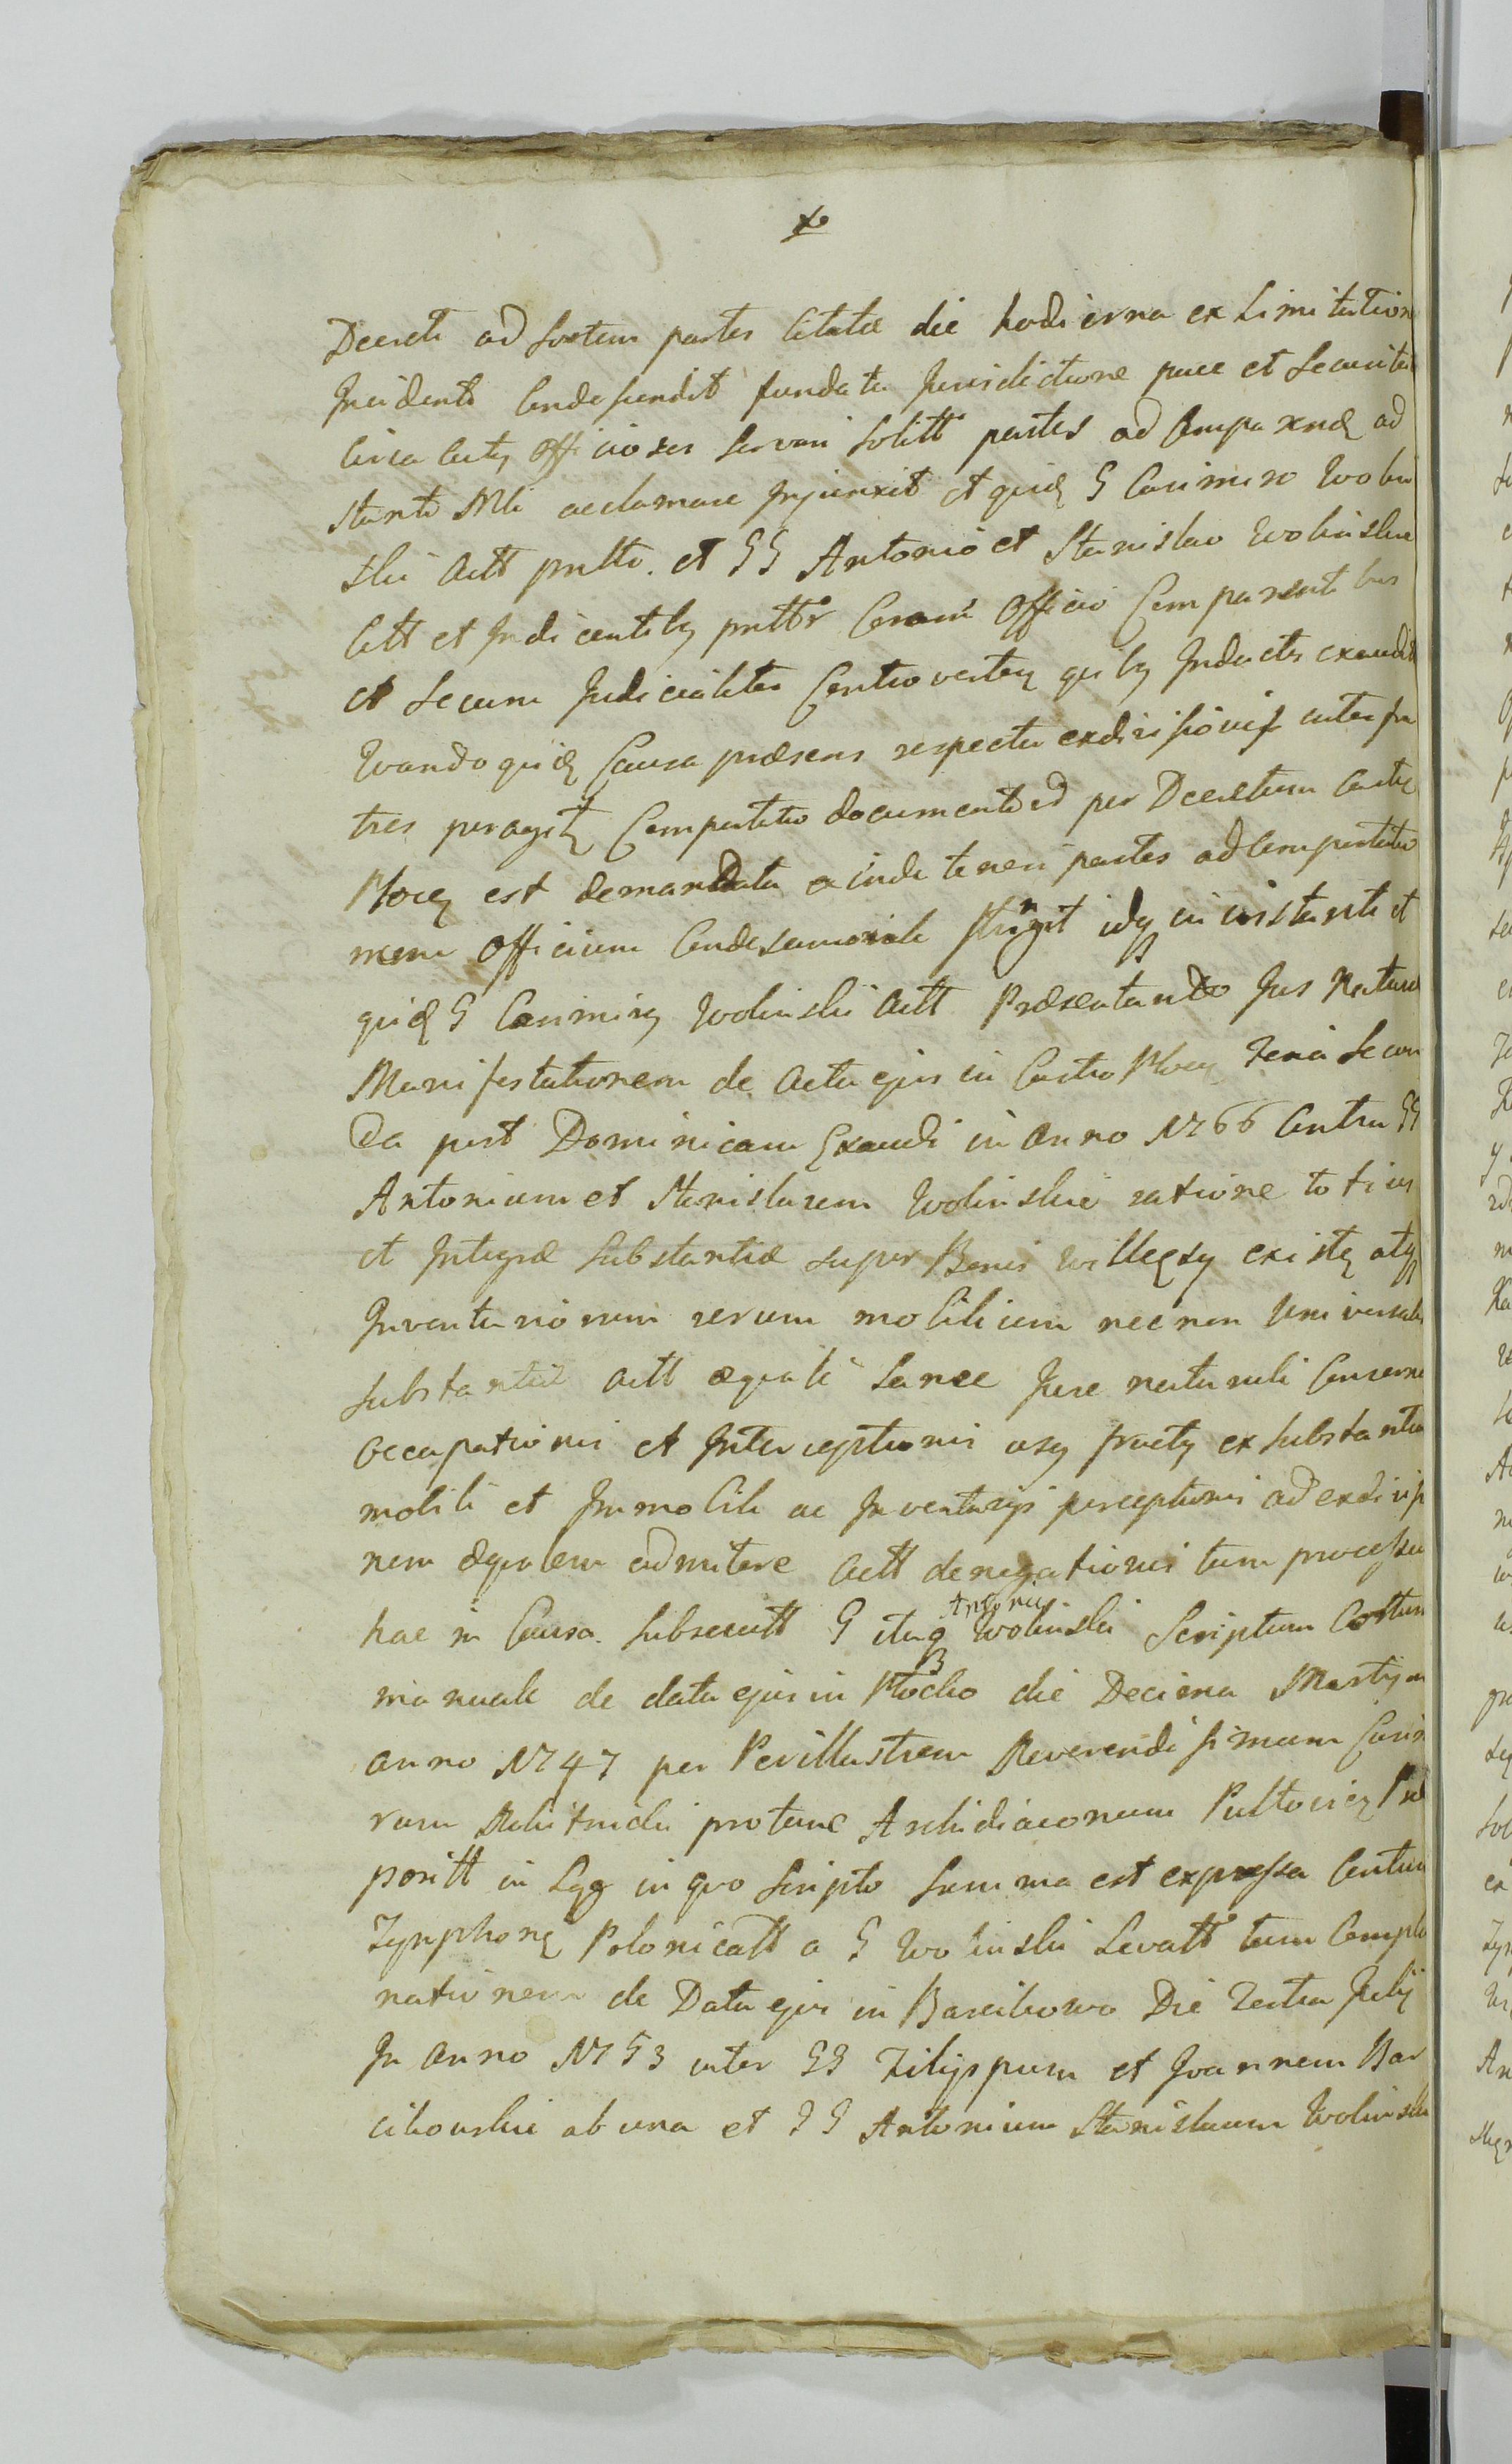 Decreti ad sortem partis Citatæ die hodierna ex Limitation
Incidenti Condescendit fundata Jurisdictione pace et Securitat
Circa Actq Officiosos servari solitt partes ad Comparend ad
stanti Mli acclamare Injunxit et quid G Casimiro Wolin
ski Actt pntto. et GG Antonio et Stanislao Wolinskie
Citt et Indicentibq pnttbr Coram Officio Comparentibus
et secum Judicialiter Controverteq quibq Inductis exaudit
Wando quid Causa præsens respectu exdivisionis inter fra
tres peragitq Comportatio documentor per Decretum Castq
Plocq est demandata exinde teneri partes ad Comportatio
nem Officium Condescensoriale stringit idq in instanti et
quid G Casimirq Wolinski Actt Præsentando Jus Natura
Manifestationem de Actu ejus in Castro Plocq Feria Secun
da post Dominicam Exaudi in Anno 1766 Contra GG
Antonium et Stanislaum Wolinskie ratione totius
et Integræ substantiæ super Bonis Willegsy existq atq
Inventariorum rerum mobilium necnon Universalis
substantiæ Actt æquali Lance Jure naturali Concerne
occupationis et Interceptionis usq fructq ex substantia
mobili et Immobili ac Inventarijs perceptionis ad exdivisio
nem æqualem admittere Actt denegationis tum processu
hac in Causa. subsecutt G itaq Antonii Wolinski Scriptum Costum
manuale de data ejus in Plocko die Decima Martij in
anno 1747 per Perillustrem Reverendissimum Casim
rum Rokitnicki protunc Archidiaconum Pultoviez Præ
positt in Lgg in quo scripto summa est expressa Centum
Tynphonq Polonicatt a G Wolinski Levatt tum Compla
nationem de Data ejus in Barcikowo Die Tertia Julij
In Anno 1753 inter GG Filipspum et Joannem Bar
cikowskie ab una et GG Antonium Stanislaum Wolinski